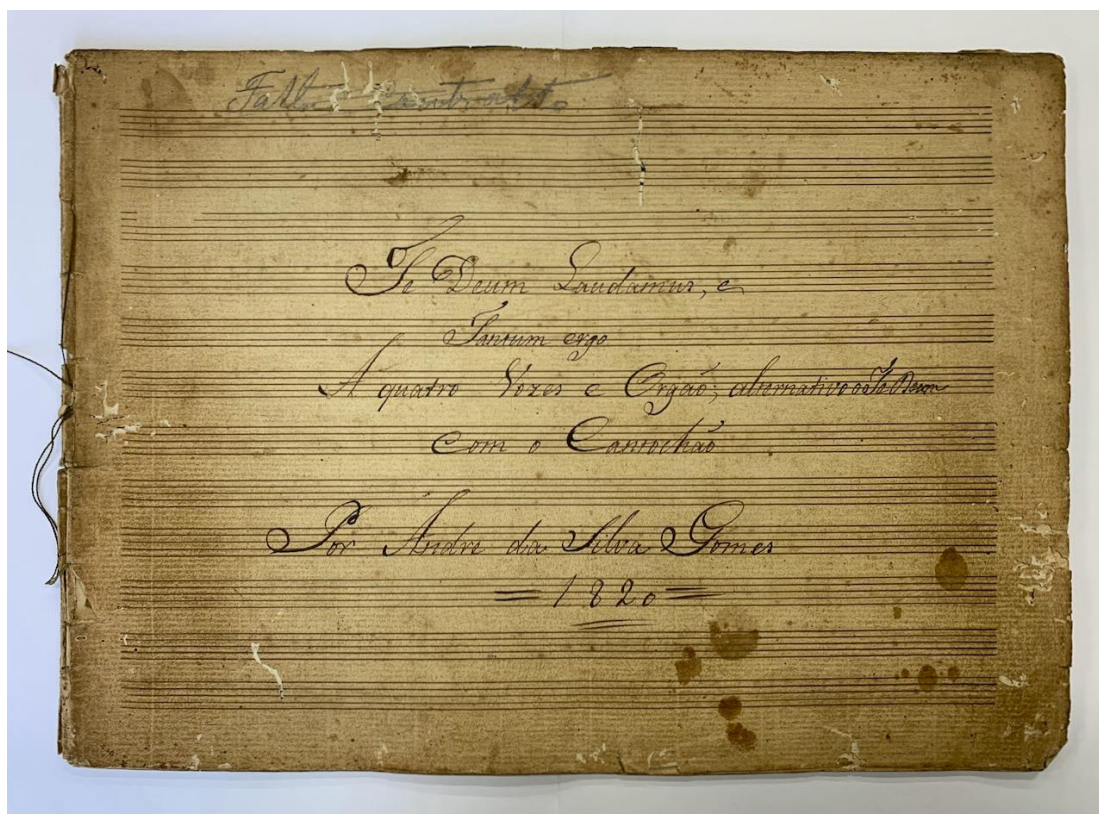 Falta Contralto
Te Deum Laudamus, e
Tantum ergo
A quatro Vozes e Orgaõ; alternativo o Te Deum
com o Cantochaõ
Por Andre da Silva Gomes
= 1820 =